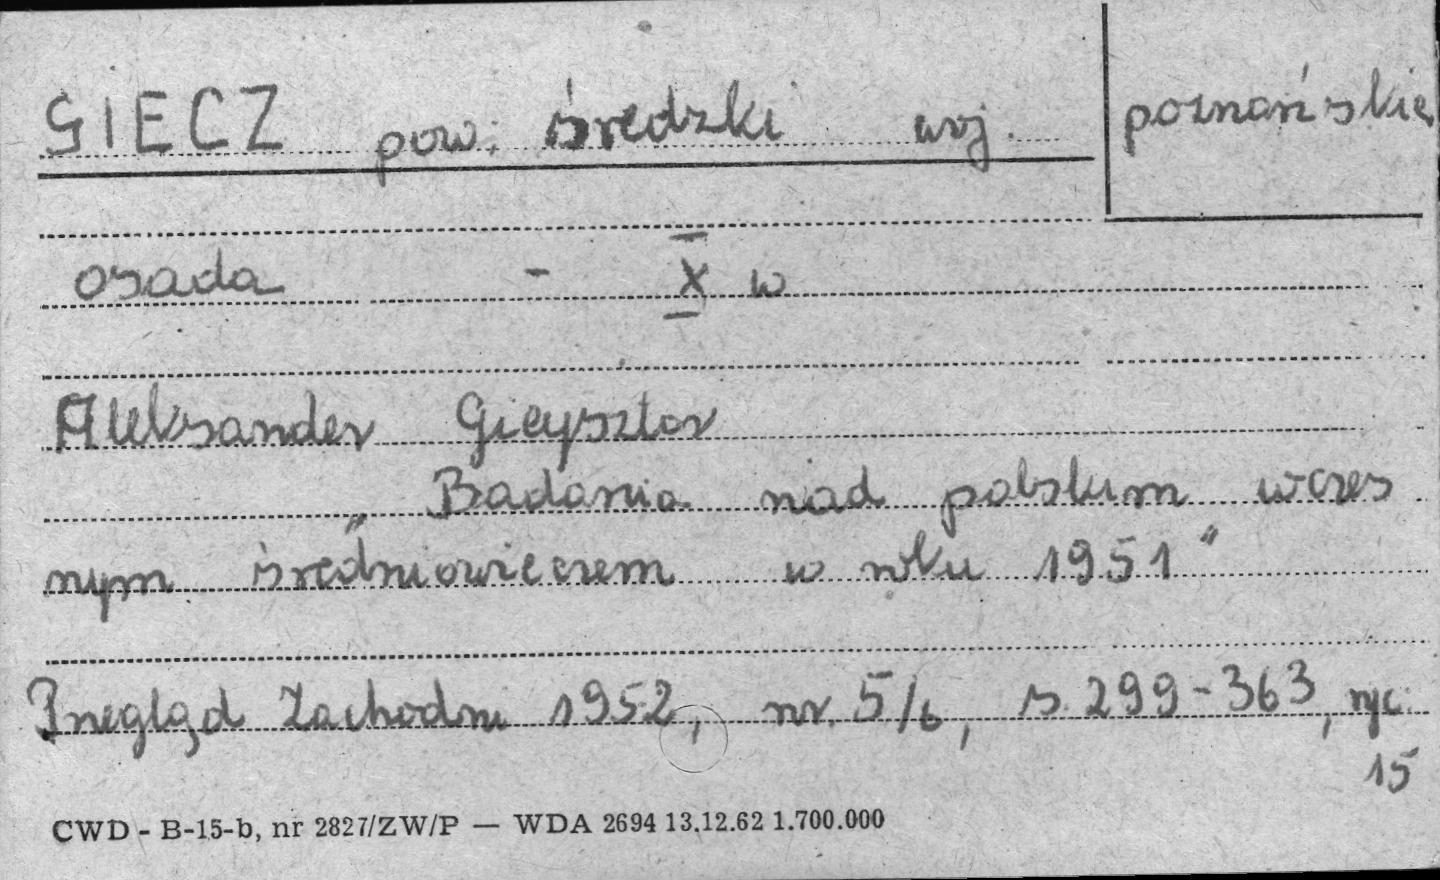 GIECZ pow. średzki woj. poznańskie
osada - X w
Aleksander Gieysztor
„Badania nad polskim wczes
nym średniowieczem w roku 1951"
Przegląd Zachodni 1952, nr. 5/6, s. 299-363, ryc.
15
CWD - B-15-b, nr 2827/ZW/P — WDA 2694 13.12.62 1.700.000